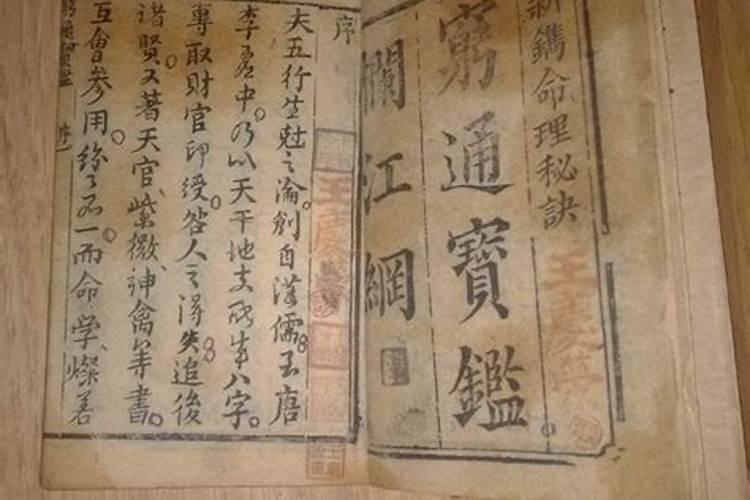 新鐫命理秘訣
窮通寶鑑
欄江網
序
夫五行生尅之淪創自漢儒至唐
李虛中乃以天干地支配年八字
專取財官印綬咎人之得失追後
諸賢又著天官紫微神禽等書
互會參用紛紛不一而命學燦若